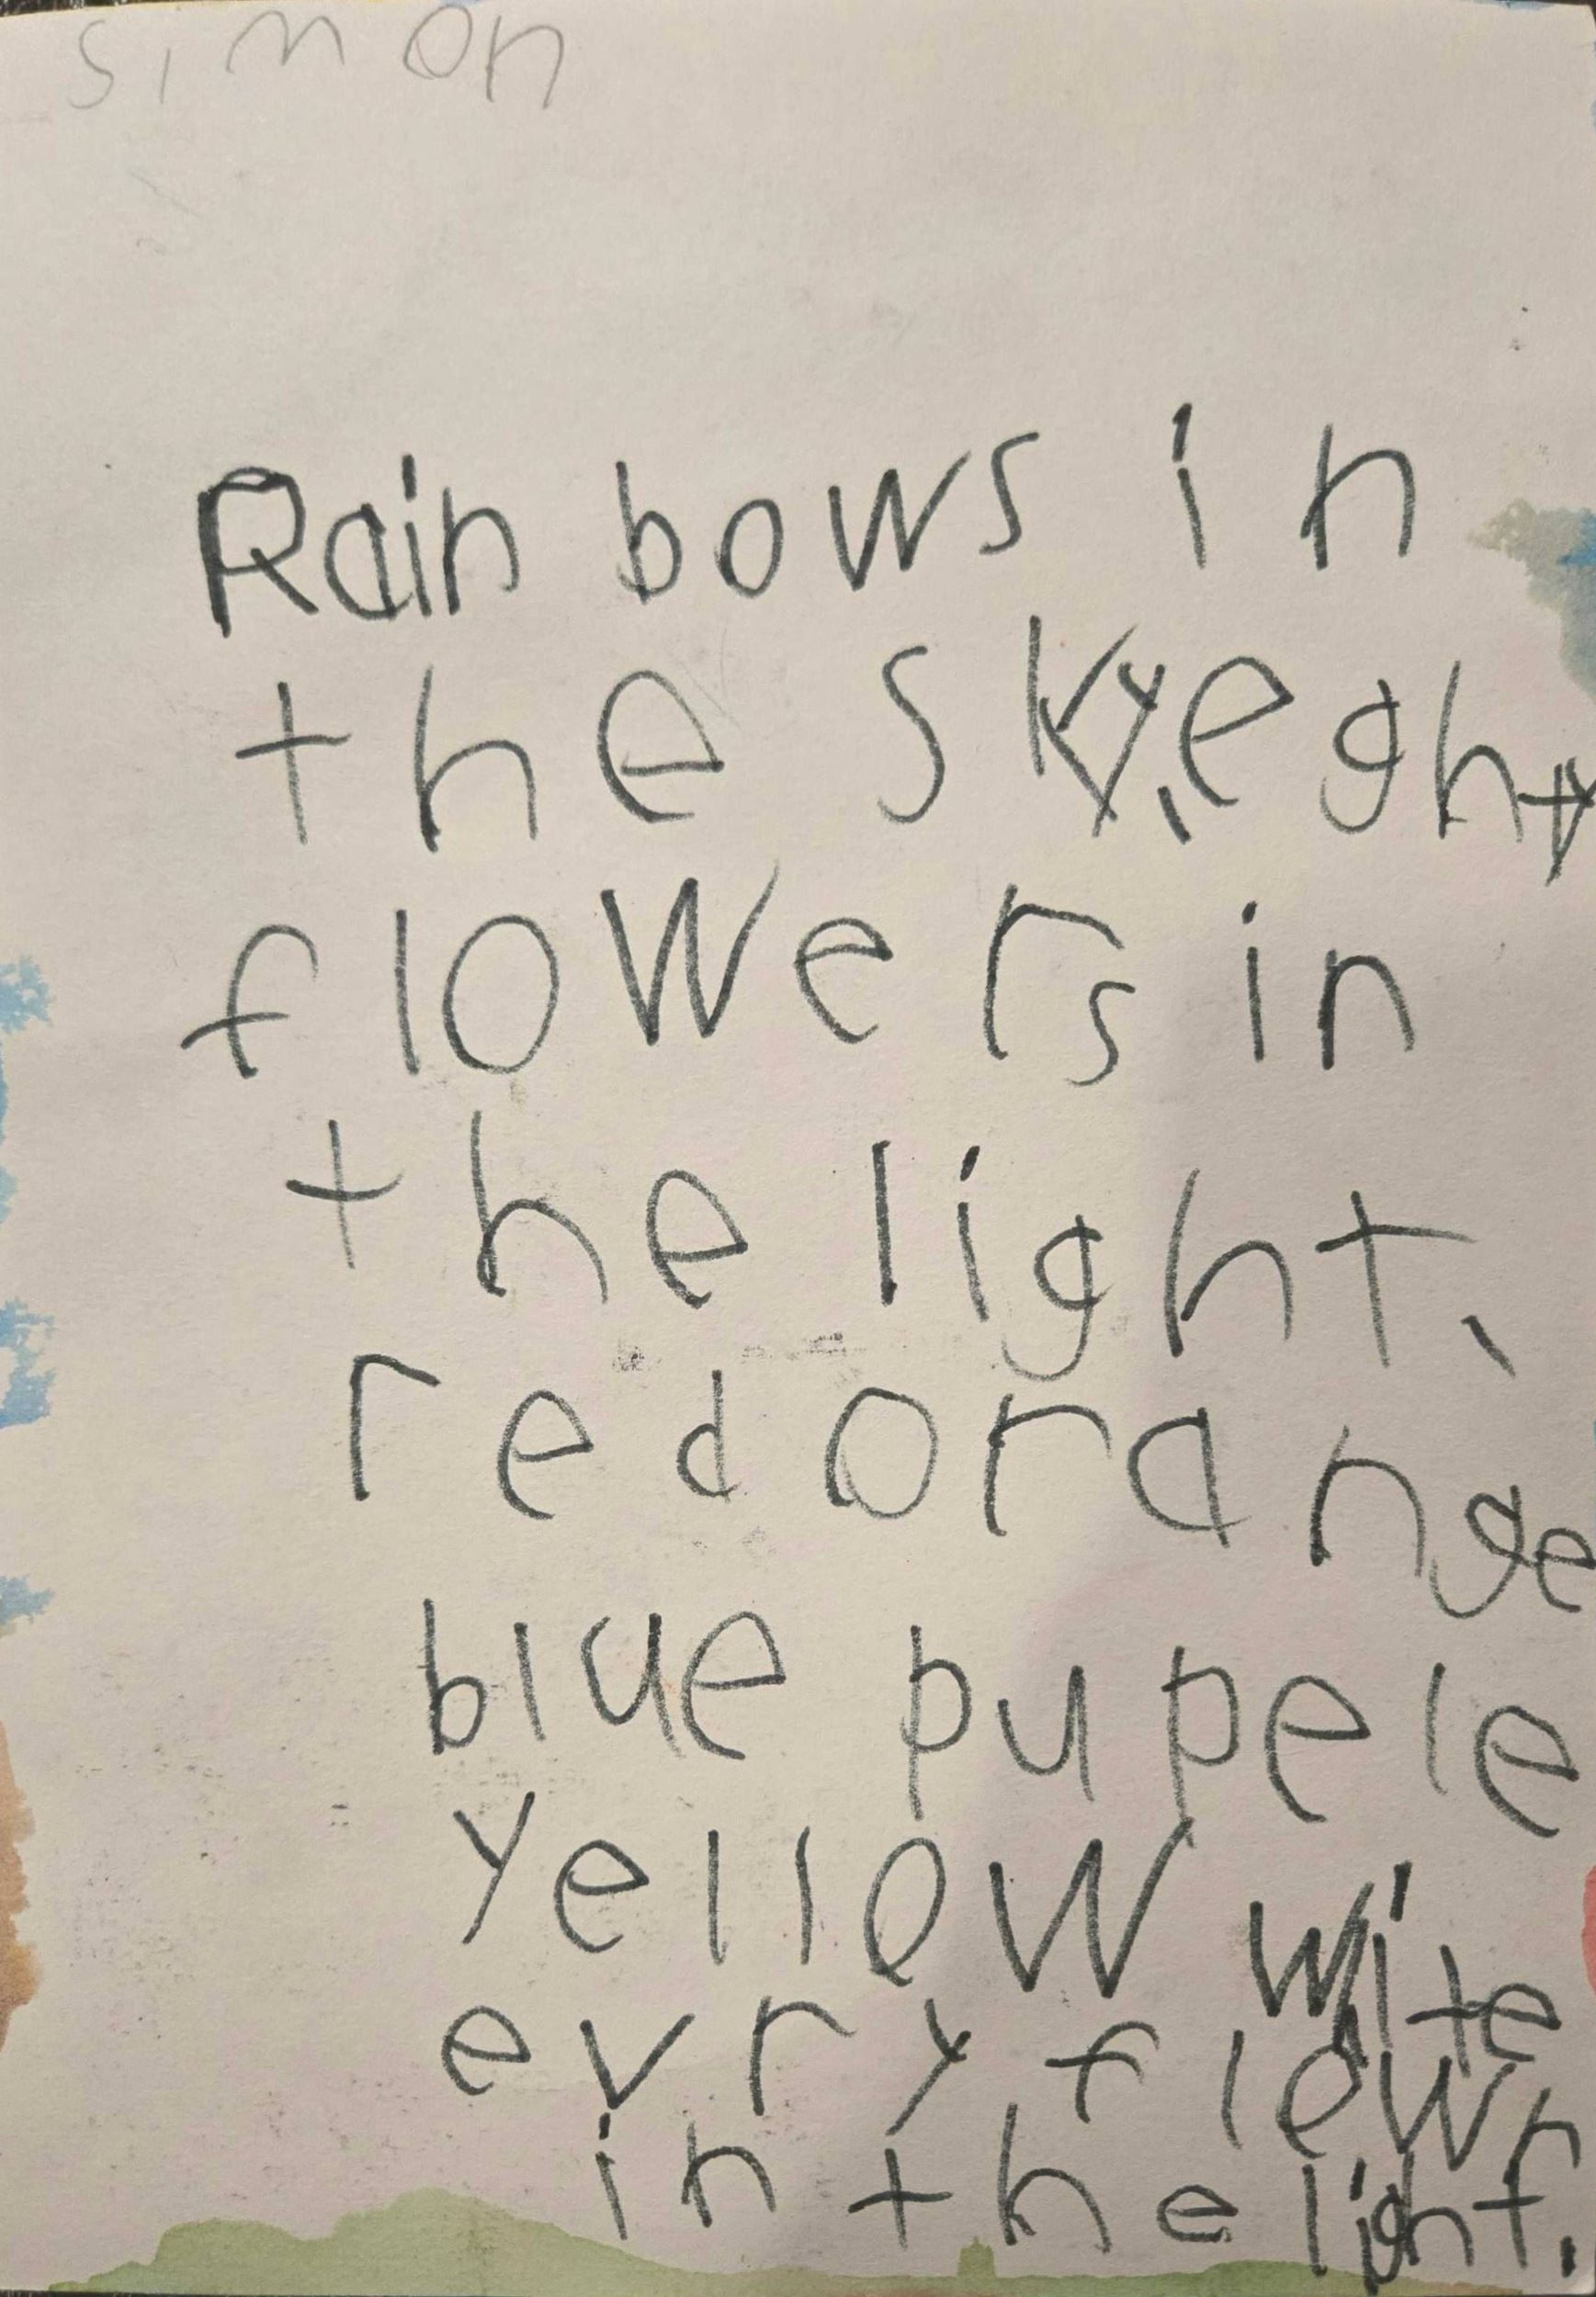 simon
Rainbows in
the sky, eghty
flowers in
the light,
red orange
blue pupele
yellow wite
evry flowr
in the light.